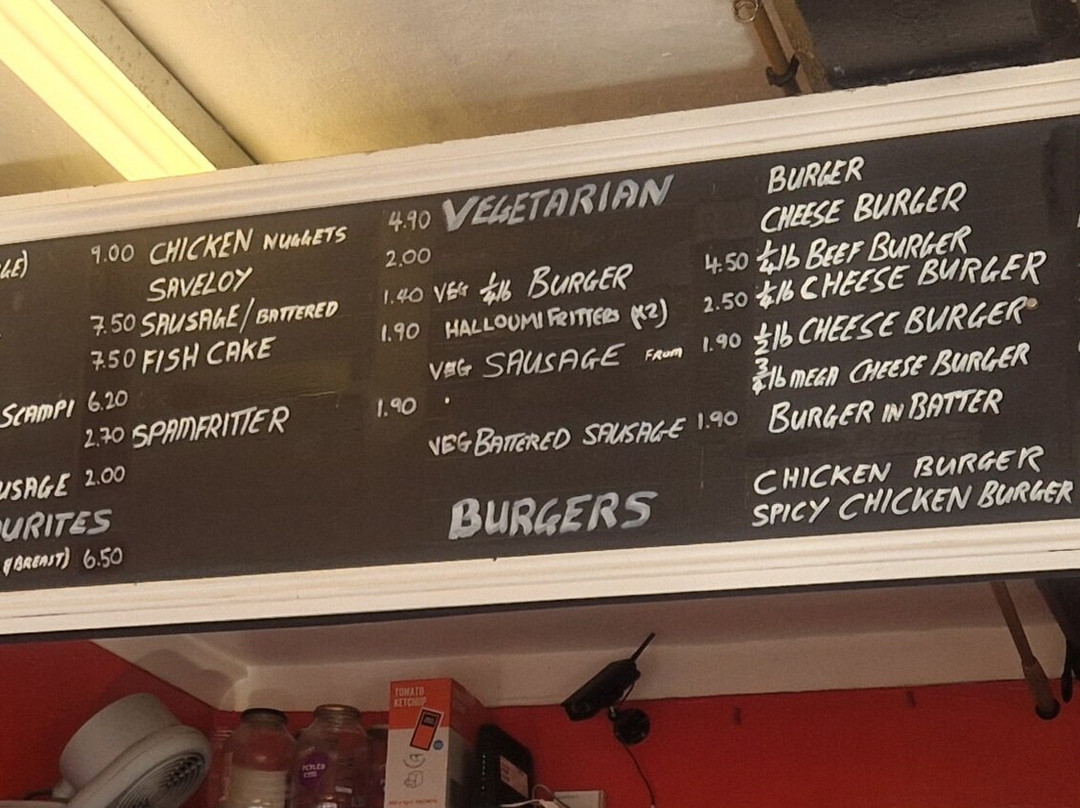 GE) 9.00
7.50
7.50
SCAMPI 6.20
2.70
USAGE 2.00
OURITES
(BREAST) 6.50
CHICKEN NUGGETS 4.90
SAVELOY 2.00
SAUSAGE/BATTERED 1.40
FISH CAKE 1.90
SPAMFRITTER 1.90
VEGETARIAN
VEG 1/4lb BURGER 4.50
HALLOUMI FRITTERS (X2) 2.50
VEG SAUSAGE FROM 1.90
VEG BATTERED SAUSAGE 1.90
BURGERS
BURGER
CHEESE BURGER
1/4lb BEEF BURGER
1/4lb CHEESE BURGER
1/2lb CHEESE BURGER
3/4lb MEGA CHEESE BURGER
BURGER IN BATTER
CHICKEN BURGER
SPICY CHICKEN BURGER
TOMATO
KETCHUP